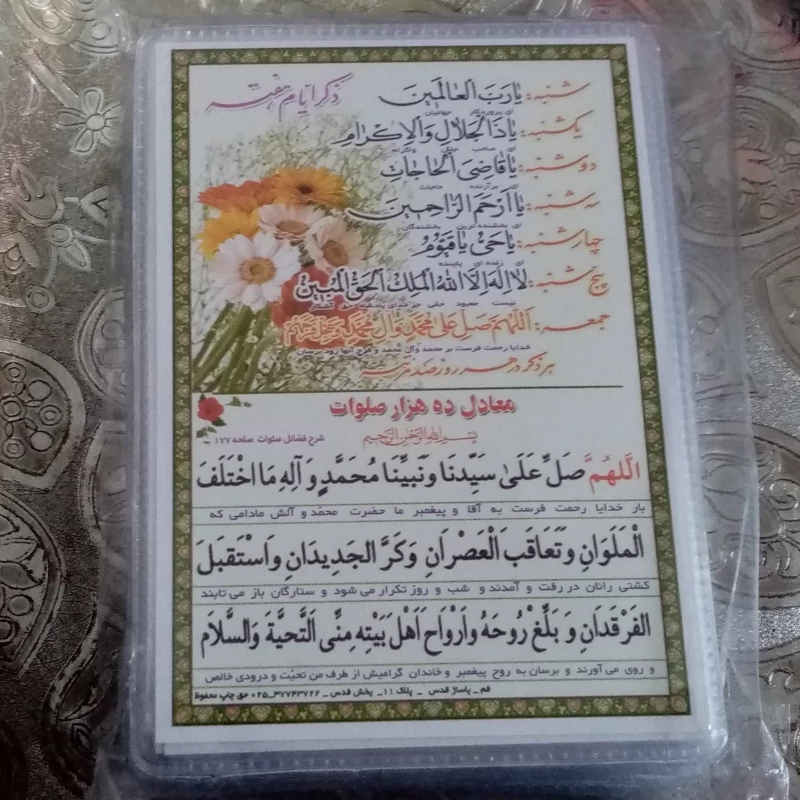 ذکر ایام هفته
شنبه: یا رَبَّ العالَمین
ای پروردگار جهانیان
یکشنبه: یا ذَا الْجَلالِ وَالْاِکْرام
ای صاحب جلال و اکرام
دوشنبه: یا قاضِیَ الْحاجات
ای برآرنده حاجات
سه شنبه: یا اَرْحَمَ الرّاحِمین
ای بخشنده ترین بخشندگان
چهارشنبه: یا حَیُّ یا قَیّوُمُ
ای زنده ای پاینده
پنج شنبه: لا اِلهَ اِلَّا اللهُ الْمَلِکُ الْحَقُّ الْمُبین
نیست معبود حقی جز خدای
جمعه: اَللّهُمَّ صَلِّ عَلی مُحَمَّدٍ وَآلِ مُحَمَّدٍ وَعَجِّلْ فَرَجَهُمْ
خدایا رحمت فرست بر محمد و آل محمد و فرج آنها زود برسان
هر ذکر در هر روز صد مرتبه
معادل ده هزار صلوات
بِسْمِ اللهِ الرَّحْمنِ الرَّحیمِ
شرح فضائل صلوات صفحه ۱۷۷
اَللهُمَّ صَلِّ عَلیٰ سَیِّدِنَا وَنَبِیِّنَا مُحَمَّدٍ وَ آلِهِ مَا اخْتَلَفَ
بار خدایا رحمت فرست به آقا و پیغمبر ما حضرت محمّد و آلش مادامی که
الْمَلَوَانِ وَتَعَاقَبَ الْعَصْرَانِ وَکَرَّ الْجَدِیدَانِ وَاسْتَقْبَلَ
کشتی رانان در رفت و آمدند و شب و روز تکرار می شود و ستارگان باز می تابند
الفَرْقَدَانِ وَ بَلِّغْ رُوحَهُ وَاَرْوَاحَ اَهْلَ بَیْتِهِ مِنِّی اَلتَّحِیَّةَ وَالسَّلاَم
و روی می آورند و برسان به روح پیغمبر و خاندان گرامیش از طرف من تحیّت و درودی خالص
قم _ پاساژ قدس _ پلاک ۱۱_ پخش قدس _ ۳۷۷۴۳۷۲۲_۰۲۵ حق چاپ محفوظ